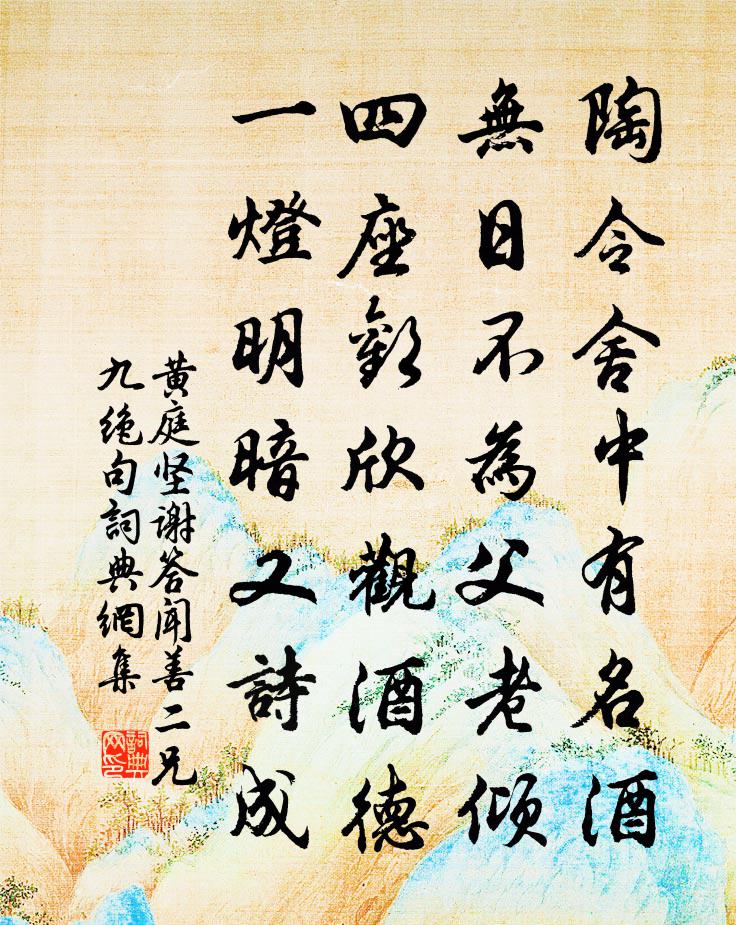 陶令舍中有名酒
無日不為父老傾
四座歡欣觀酒德
一燈明暗又詩成
黄庭坚谢答闻善二兄
九绝句詞典網集
詞典网印